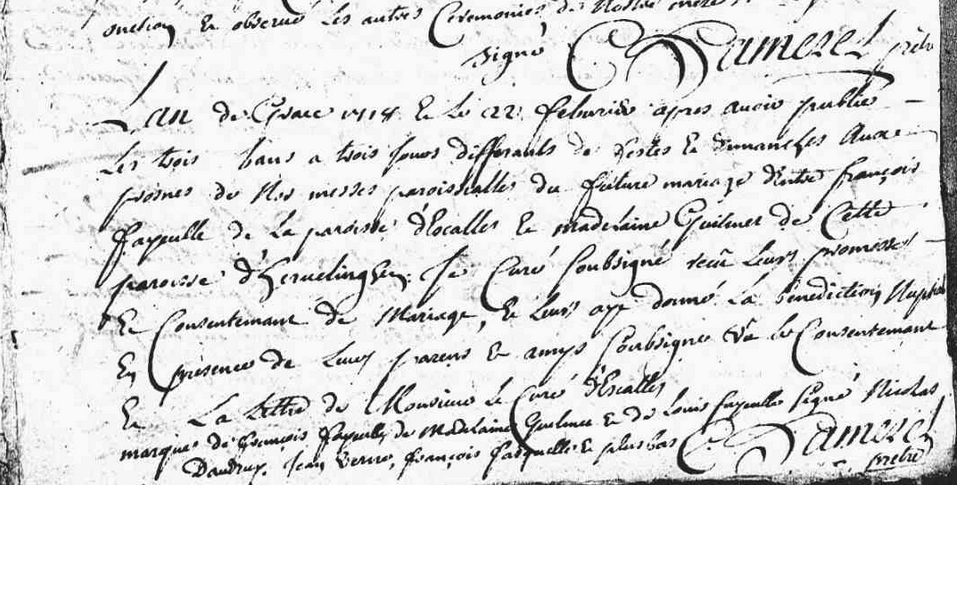 onction Et observé Les autres Ceremonies de Nostre mere
signé C Dameret prebr
Lan de Grace 1718 Et Le 22 febvrier apres avoir publié
Les trois bans a trois jours differants de festes Et dimanches Aux
prosnes de Nos messes paroissialles du future mariage Entre françois
fayeulle de La paroisse d'Escalles Et madelaine Guilmer de Cette
paroisse d'hervelinghen Je Curé soubsigné receu Leurs promesses
Et Consentemant de Mariage, Et Leurs ay donné La bénédiction Nuptiale
En presence de Leurs parens Et amys soubsignes Vu le Consentemant
Et La Lettre de Monsieur Le Curé d'Escalles
marque de françois fayeulle de Madelaine Guilmer Et de Louis fayeulle signé Nicolas
Daudruy, Jean Verne, françois fasquelle Et plus bas C Dameret
prebtre